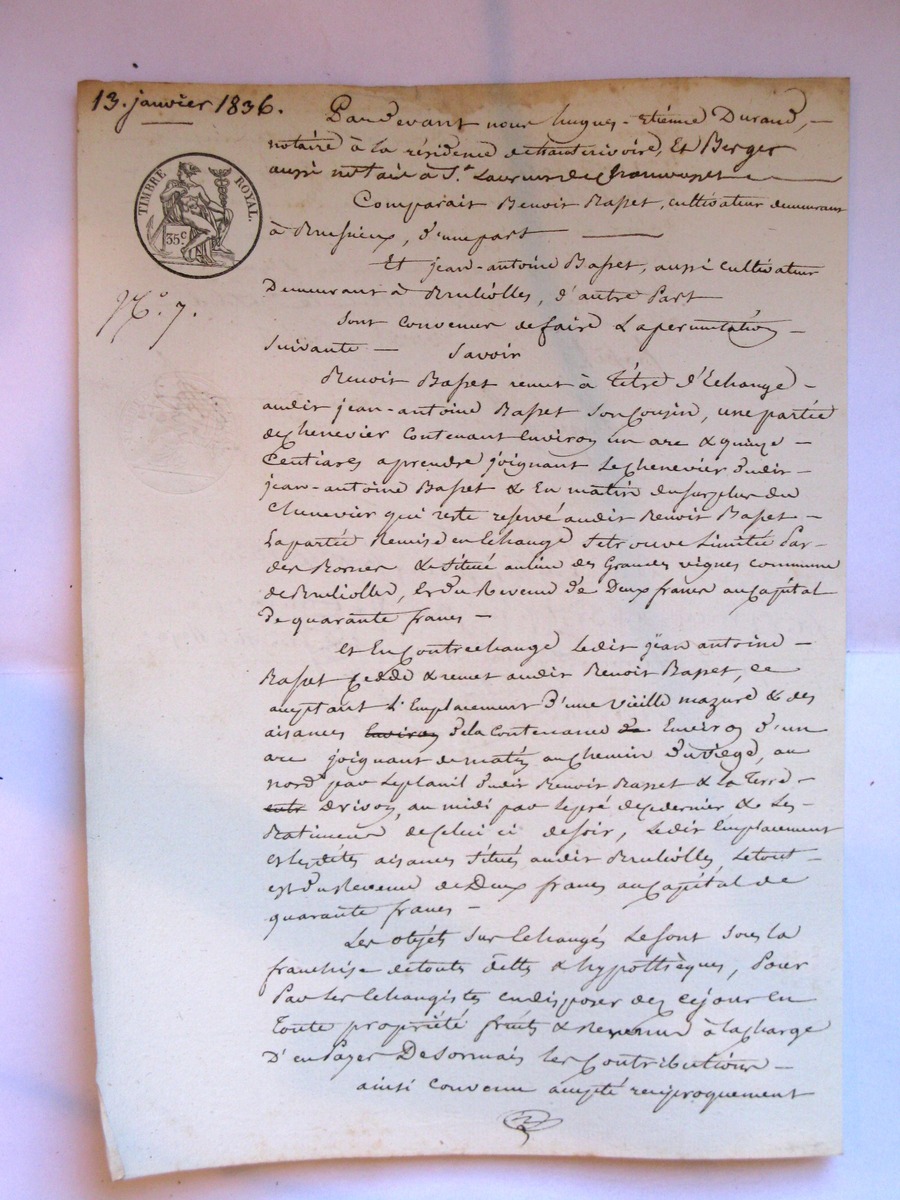 13. janvier 1836.
Pardevant nous hugues-Etiénne Durand, –
notaire à La résidence de hauterivoire, Et Berger
aussi notaire à St. Laurent de Chamousset
TIMBRE ROYAL.
35c
Comparait Benoit Basset, cultivateur demeurant
à Brussieux, d'une part
Et jean-antoine Basset, aussi cultivateur
N.° 7.
Demeurant à Brullolles, d'autre Part
Sont Convenus de faire La permutation –
Suivante — Savoir
Benoit Basset remet à tître d'Echange –
audit jean-antoine Basset Son Cousin, une partie
de Chenevier Contenant Environ un are & quinze –
Centiares aprendre joignant Le Chenevier dudit –
jean-antoine Basset & En matin du surplus du
Chenevier qui reste reservé audit Benoit Basset –
La partie Remise en Echange Se trouve Limitée Par
des Bornes & Située au lieu des Grandes vignes commune
de Brullolles, Et du Revenu de Deux francs au Capital
de quarante francs –
Et En Contrechange Ledit jean antoine –
Basset Cedde & remet audit Benoit Basset, ce
acceptant L'Emplacement d'une vieille mazure & des
aisances Environ de la Contenance de Environ d'un
are joignant de matin au Chemin du
nord par Le dudit Benoit Basset & la Terre –
au midi par Le pré de ce dernier & Les
Batiments de Celui ci de soir, Ledit Emplacement
et Lesdites aisances Situés audit Brullolles, Le tout –
est du Revenu de Deux francs au Capital de
quarante francs –
Les objets sus Echangés Le sont sous la
franchise de touts dettes & hypothèques, Pour
Par les Echangistes en disposer dez ce jour En
Toute propriété fruits & Revenus à la charge
D'en Payer Desormais les Contributions –
ainsi Convenu accepté reciproquement